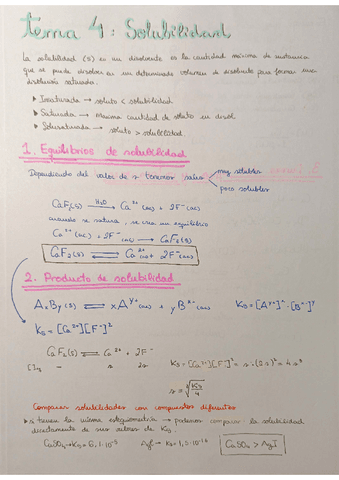 Tema 4: Solubilidad
La solubilidad (s) en un disolvente es la cantidad máxima de sustancia
que se puede disolver en un determinado volumen de disolvente para formar una
disolución saturada.
▶ Insaturada → soluto < solubilidad
▶ Saturada → Máxima cantidad de soluto en disol.
▶ Sobresaturada → soluto > solubilidad.
1. Equilibrios de solubilidad
Dependiendo del valor de s tenemos sales → muy solubles
→ poco solubles
CaF₂(s) —H₂O→ Ca²⁺(ac) + 2F⁻(ac)
cuando se satura, se crea un equilibrio
Ca²⁺(ac) + 2F⁻(ac) → CaF₂(s)
CaF₂(s) ⇌ Ca²⁺(ac) + 2F⁻(ac)
2. Producto de solubilidad
AxBy(s) ⇌ xAʸ⁺(ac) + yBˣ⁻(ac) Ks = [Aʸ⁺]ˣ · [Bˣ⁻]ʸ
Ks = [Ca²⁺][F⁻]²
CaF₂(s) ⇌ Ca²⁺ + 2F⁻ Ks = [Ca²⁺][F⁻]² = s · (2s)² = 4s³
[ ] - s 2s
s = ∛(Ks/4)
Comparar solubilidades con compuestos diferentes
▶ si tienen la misma estequiometría → podemos comparar la solubilidad
directamente de sus valores de Ks.
CaSO₄ → Ks = 6,1·10⁻⁵ AgI → Ks = 1,5·10⁻¹⁶ CaSO₄ > AgI